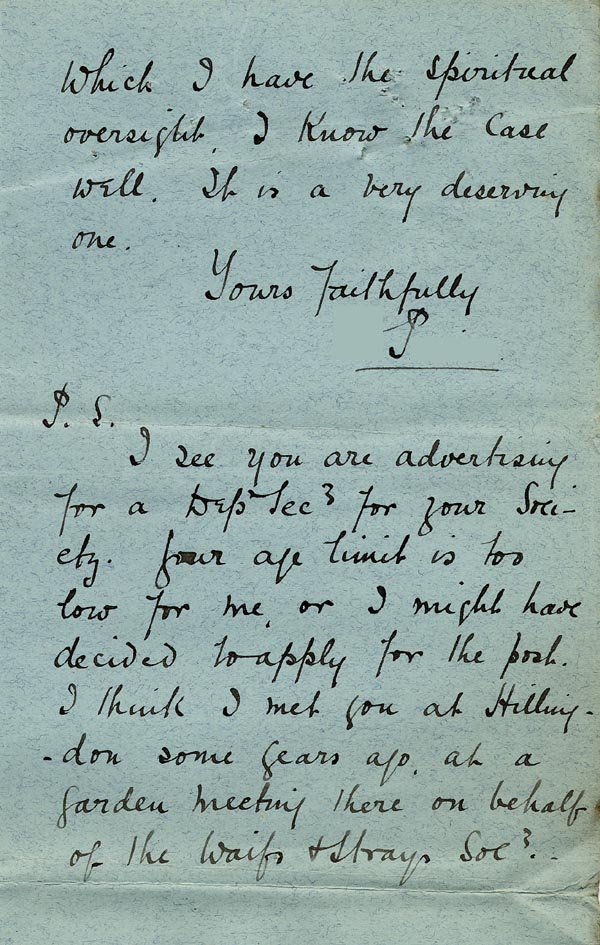 Which I have the spiritual
oversight, I know the case
well. It is a very deserving
one.
Yours faithfully
P
P. S.
I see you are advertising
for a Depy Secy for your Soci-
ety. Your age limit is too
low for me, or I might have
decided to apply for the post.
I think I met you at Hilling-
-don some years ago, at a
garden meeting there on behalf
of the Waifs & Strays Socy. -